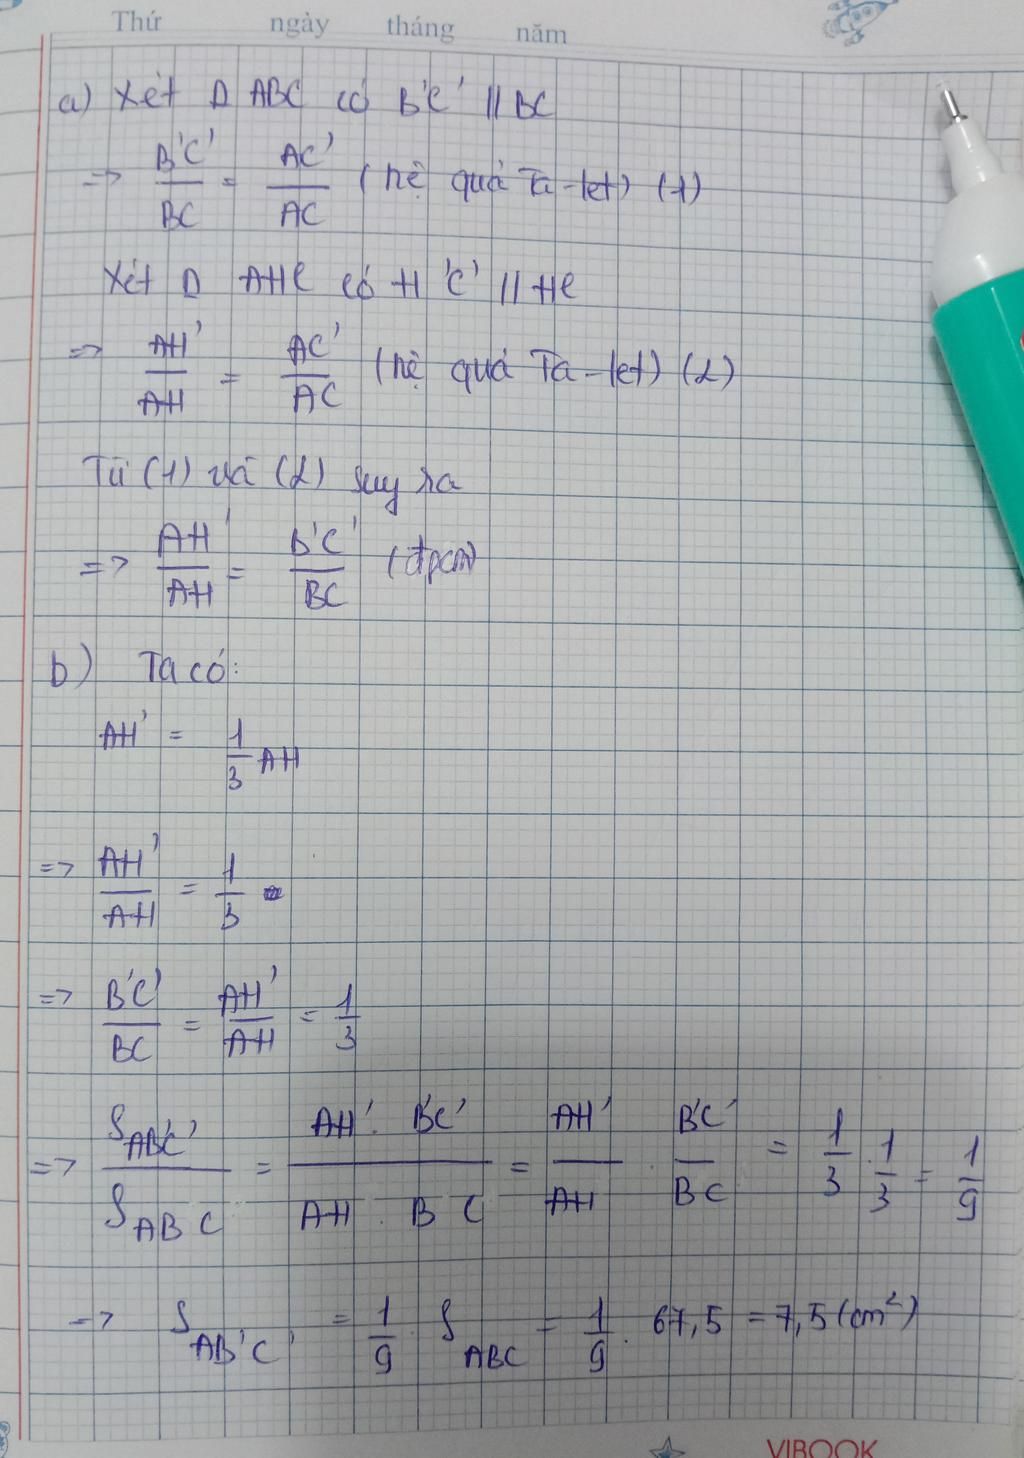 Thứ ngày tháng năm
a) Xét Δ ABC có B'C' // BC
=> B'C'/BC = AC'/AC (hệ quả Ta-let) (1)
Xét Δ AHC có H'C' // HC
=> AH'/AH = AC'/AC (hệ quả Ta-let) (2)
Từ (1) và (2) suy ra
=> AH'/AH = B'C'/BC (đpcm)
b) Ta có:
AH' = 1/3 AH
=> AH'/AH = 1/3
=> B'C'/BC = AH'/AH = 1/3
=> S_AB'C'/S_ABC = AH'. B'C'/AH . BC = AH'/AH . B'C'/BC = 1/3 . 1/3 = 1/9
=> S_AB'C' = 1/9 S_ABC = 1/9 . 67,5 = 7,5 (cm²)
VIBOOK